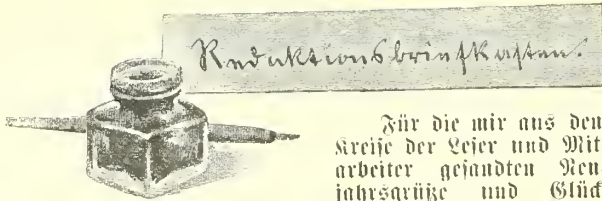 Redaktionsbriefkasten.
Für die mir aus dem
Kreise der Leser und Mit
arbeiter gesandten Neu
jahrsgrüße und Glück